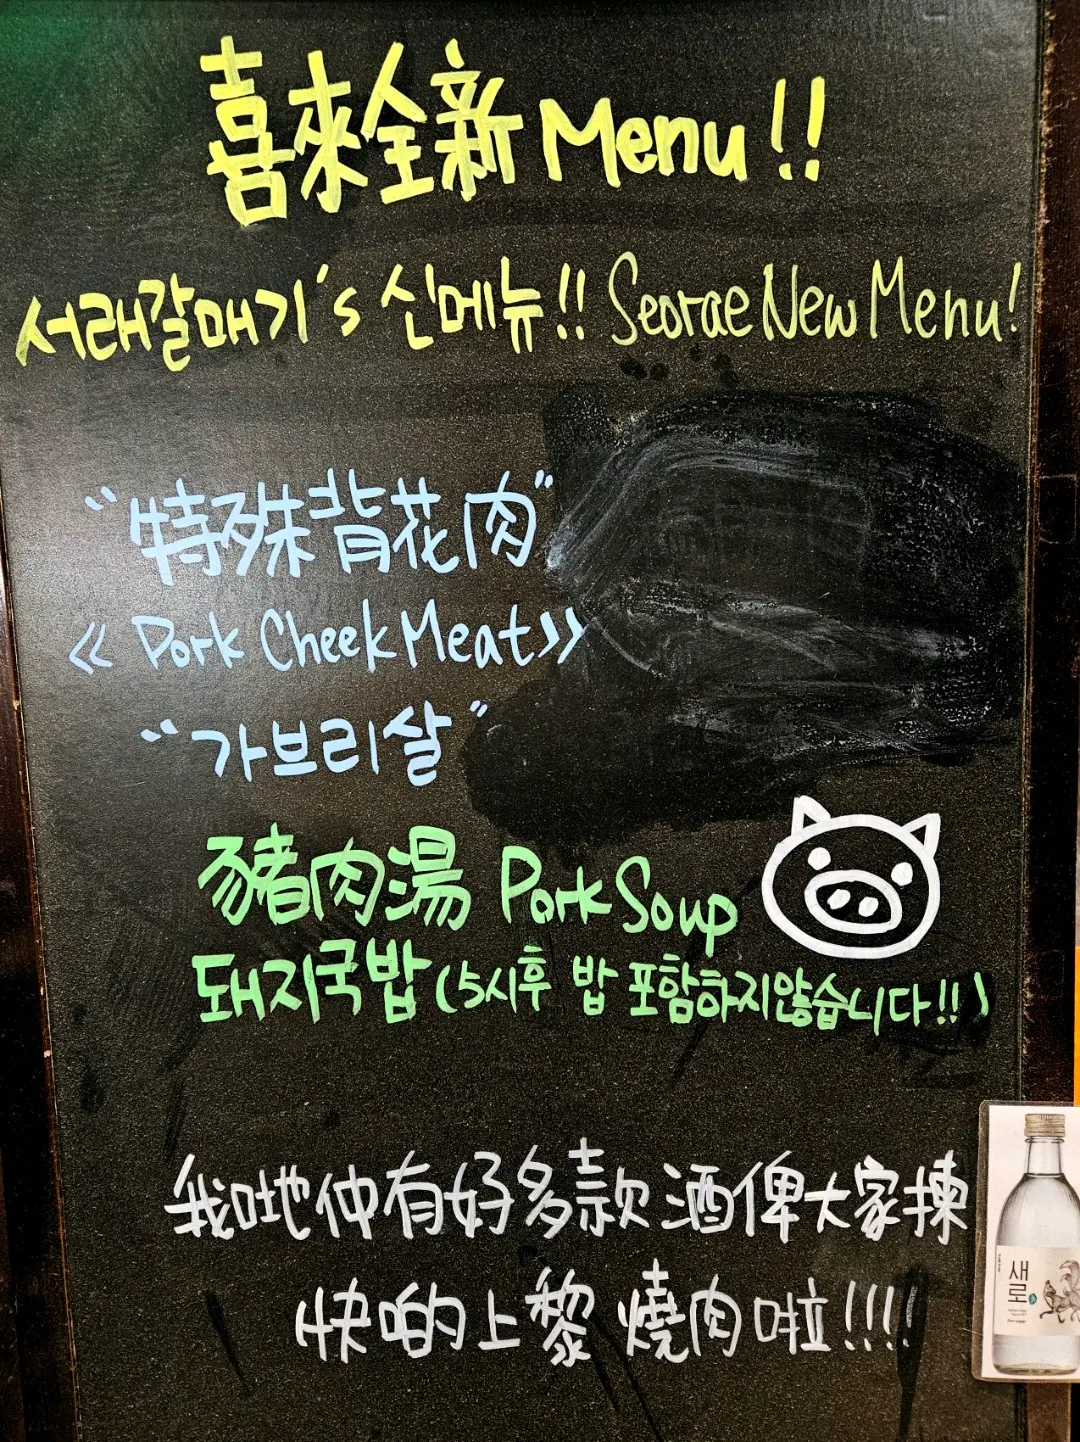 喜來全新 Menu!!
서래갈매기's 신메뉴!! Seorae New Menu!
“特殊背花肉”
≪ Pork Cheek Meat≫
“가브리살”
豬肉湯 Pork Soup
돼지국밥 (5시후 밥 포함하지않습니다!!)
我哋仲有好多款酒俾大家揀
快啲上黎燒肉啦!!!!
새로